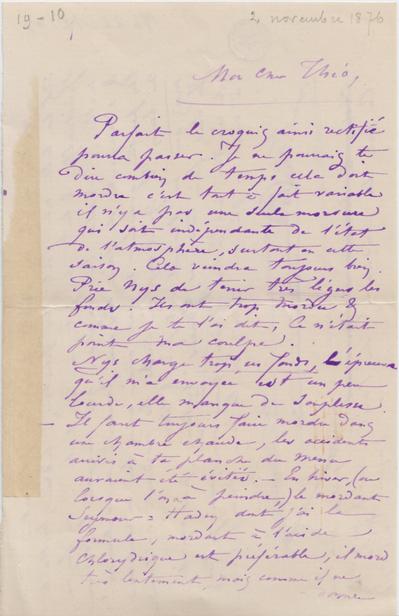 19-10
2 novembre 1876
Mon cher Théo,
Parfait le croquis ainsi rectifié
pourra passer. Je ne pourrais te
dire combien de temps cela doit
mordre c'est tout à fait variable
il n'y a pas une seule morsure
qui soit indépendante de l'état
de l'atmosphère, surtout en cette
saison. Cela viendra toujours bien.
Prie Nys de tenir très légers les
fonds. Ils ont trop mordu &
comme je te l'ai dit, ce n'était
point ma coulpe.
Nys charge trop ses fonds, l'épreuve
qu'il m'a envoyée est un peu
lourde, elle manque de souplesse.
Il faut toujours faire mordre dans
une chambre chaude, les accidents
arrivés à ta planche du
auraient été évités. — En hiver, (ou
lorsque l'on a à peindre,) le mordant
Seymour-Haden dont j'ai la
formule, mordant à l'acide
chlorydrique est préférable, il mord
très lentement, mais comme il ne
donne